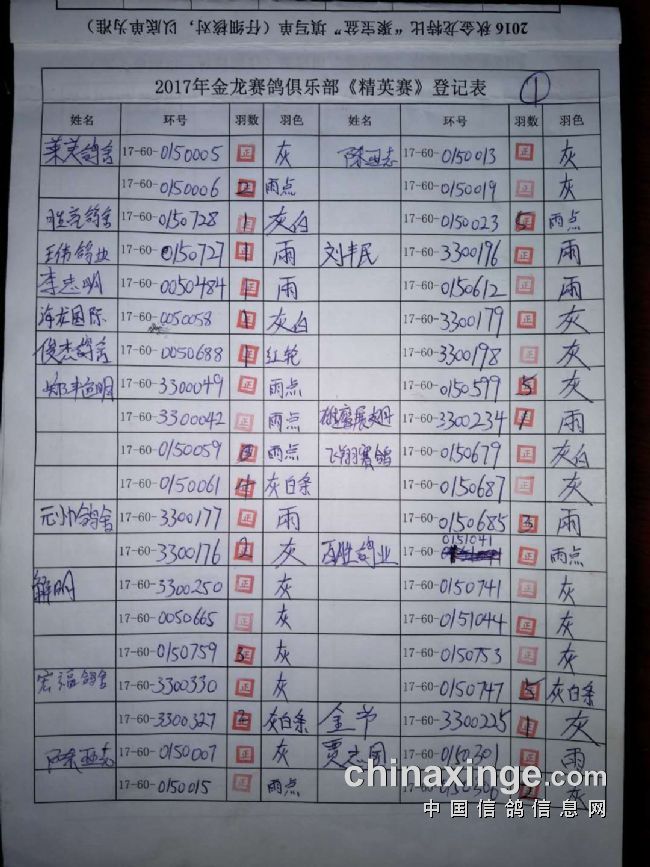 2016 秋金龙特比"聚宝盆"填写单(仔细核对,以底单为准)
2017年金龙赛鸽俱乐部《精英赛》登记表 ①
姓名 环号 羽数 羽色 姓名 环号 羽数 羽色
莱芙鸽舍 17-60-0150005 正 灰 陈亚志 17-60-0150013 正 灰
17-60-0150006 2 雨点 17-60-0150019 正 灰
胜亮鸽舍 17-60-0150728 1 灰白 17-60-0150023 5 雨点
王伟鸽业 17-60-0150727 1 雨 刘丰民 17-60-3300196 正 雨
李志明 17-60-0050484 1 雨 17-60-0150612 正 雨
海龙国际 17-60-0050058 1 灰白 17-60-3300179 正 灰
俊杰鸽舍 17-60-0050688 1 红轮 17-60-3300198 正 灰
17-60-3300049 正 雨点 17-60-0150599 5 灰
17-60-3300042 正 雨点 雄鹰展翅 17-60-3300234 1 雨
17-60-0150059 雨点 飞翔赛鸽 17-60-0150679 正 灰白
17-60-0150061 4 灰白条 17-60-0150687 正 灰
元帅鸽舍 17-60-3300177 正 雨 17-60-0150685 3 雨
17-60-3300176 2 灰 百胜鸽业 17-60-0151041 正 雨点
解明 17-60-3300250 正 灰 17-60-0150741 正 灰
17-60-0050665 正 灰 17-60-0151044 正 灰
17-60-0150759 3 灰 17-60-0150753 正 灰
宏福鸽舍 17-60-3300330 正 灰 17-60-0150747 5 灰白条
17-60-3300327 2 灰白条 金节 17-60-3300225 1 灰
陈亚志 17-60-0150007 正 灰 贾志国 17-60-0150301 正 雨
17-60-0150015 正 雨点 17-60-0150306 2 灰
chinaxinge.com
中国信鸽信息网